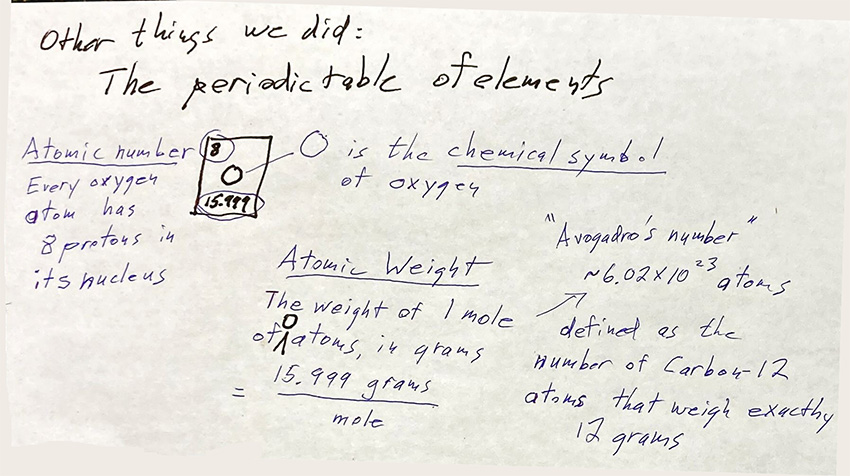 Other things we did:
The periodic table of elements
Atomic number
Every oxygen
atom has
8 protons in
its nucleus
8
O
15.999
O is the chemical symbol
of oxygen
Atomic Weight
The weight of 1 mole
of O atoms, in grams
= 15.999 grams
mole
"Avogadro's number"
~6.02×10²³ atoms
defined as the
number of Carbon-12
atoms that weigh exactly
12 grams